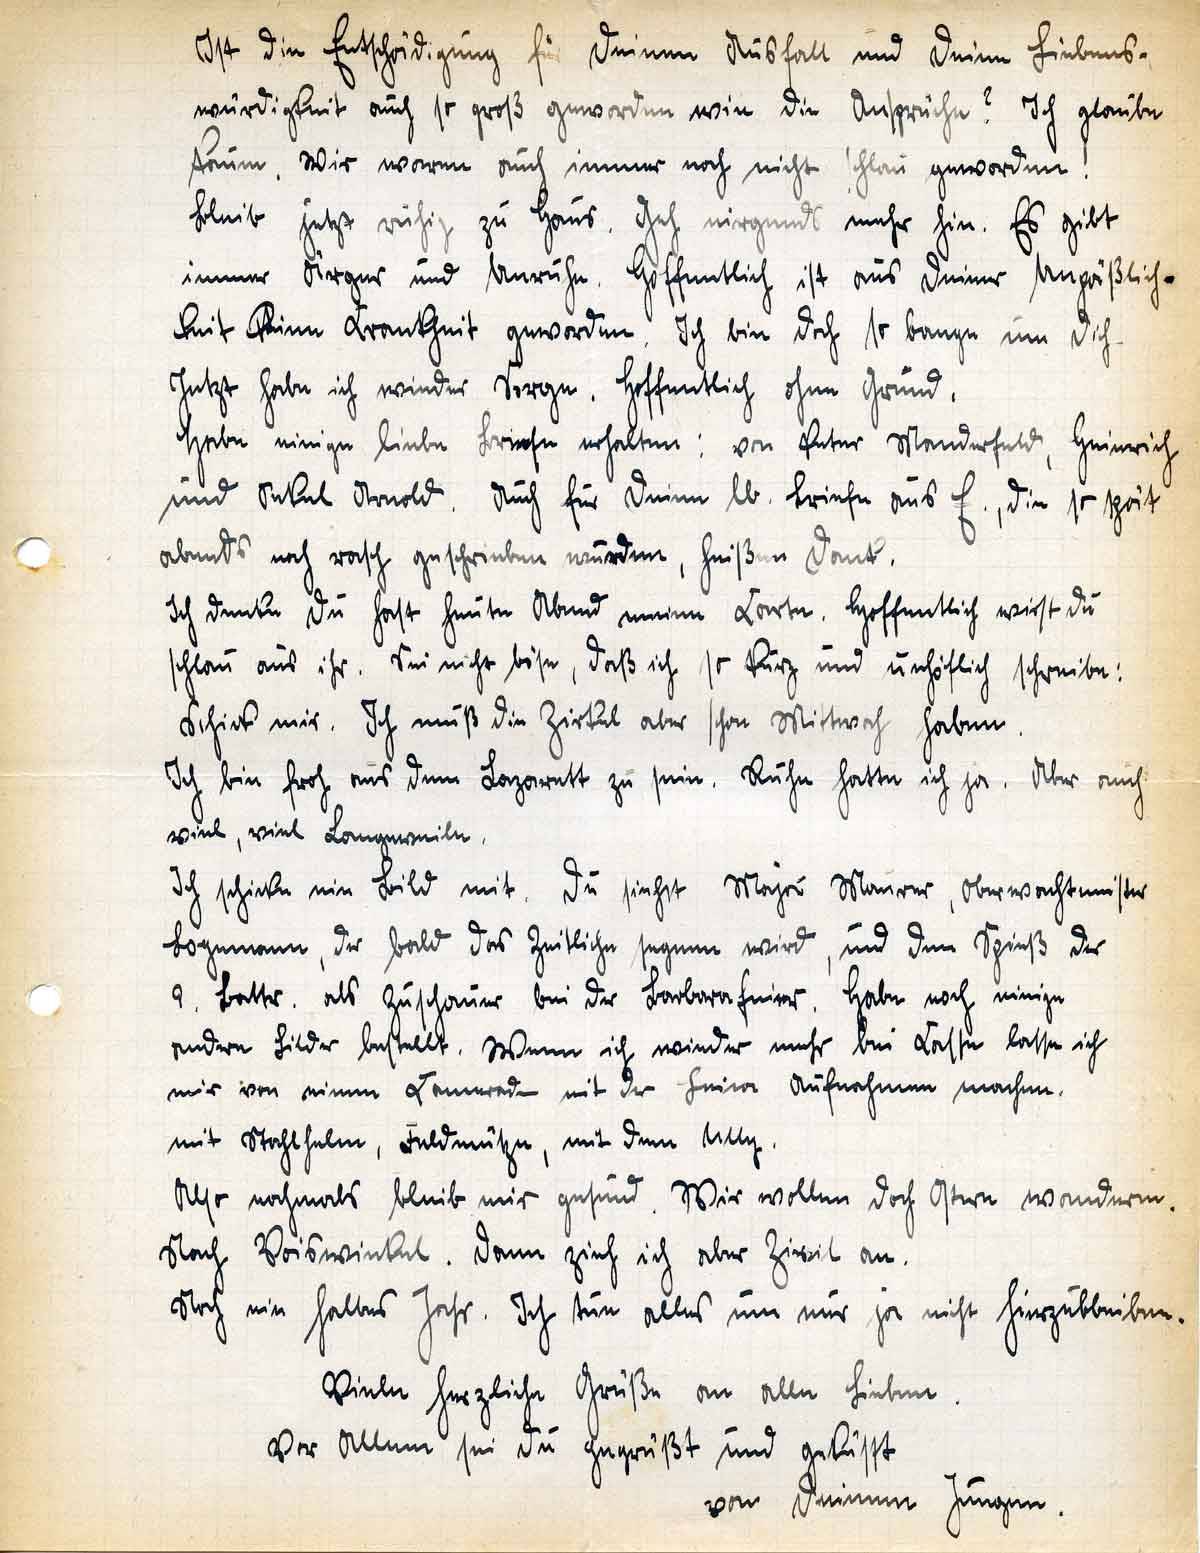 Ist die Entschädigung für Deinen Ausfall und Deine Liebens-
würdigkeit auch so groß geworden wie die Ansprüche? Ich glaube
kaum. Wir waren auch immer noch nicht schlau geworden!
Bleib jetzt ruhig zu Haus. Geh nirgends mehr hin. Es gibt
immer Ärger und Unruhe. Hoffentlich ist aus Deiner Unpäßlich-
keit keine Krankheit geworden. Ich bin doch so bange um Dich.
Jetzt habe ich wieder Sorge. Hoffentlich ohne Grund.
Habe einige liebe Briefe erhalten: von Peter Manderfeld, Heinrich
und Onkel Arnold. Auch für Deine lb. Briefe aus E., die so spät
abends noch rasch geschrieben wurden, heißen Dank.
Ich denke Du hast heute Abend meine Karte. Hoffentlich wirst Du
schlau aus ihr. Sei nicht böse, daß ich so kurz und unhöflich schreibe:
Schick mir. Ich muß die Zirkel aber schon Mittwoch haben.
Ich bin froh aus dem Lazarett zu sein. Ruhe hatte ich ja. Aber auch
viel, viel Langeweile.
Ich schicke ein Bild mit. Du siehst Major Maurer, Oberwachtmeister
Bogemann, der bald das Zeitliche segnen wird, und den Spieß der
9. Battr. als Zuschauer bei der Barbarafeier. Habe noch einige
andere Bilder bestellt. Wenn ich wieder mehr bei Kasse lasse ich
mir von einem Kamerad mit der Leica Aufnahmen machen.
mit Stahlhelm, Feldmütze, mit dem Uffz.
Also nochmals bleib mir gesund. Wir wollen doch Ostern wandern.
Nach Voiswinkel. Dann zieh ich aber Zivil an.
Noch ein halbes Jahr. Ich tue alles um nur ja nicht hierzubleiben.
Viele herzliche Grüße an alle Lieben.
Vor Allem sei Du gegrüßt und geküßt
von Deinem Jungen.